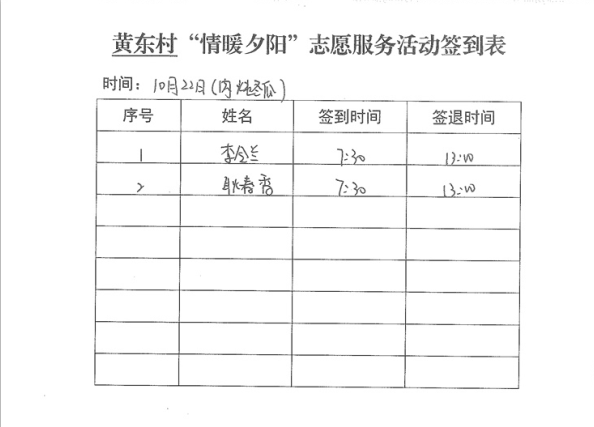 黄东村“情暖夕阳”志愿服务活动签到表
时间：10月22日(肉炖冬瓜)
序号 姓名 签到时间 签退时间
1 李全兰 7:30 13:00
2 耿春香 7:30 13:00